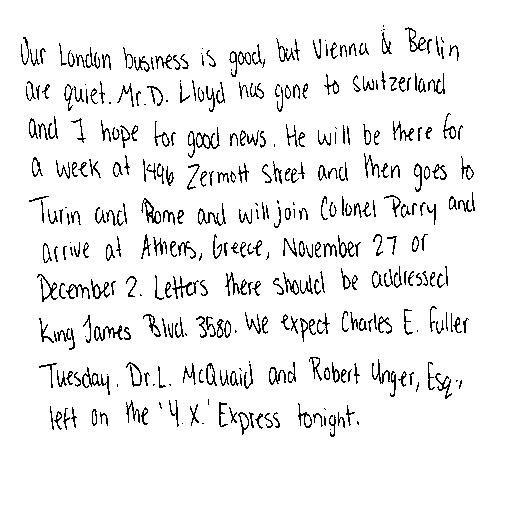 Our London business is good, but Vienna & Berlin
are quiet. Mr. D. Lloyd has gone to Switzerland
and I hope for good news. He will be there for
a week at 1496 Zermott Street and then goes to
Turin and Rome and will join Colonel Parry and
arrive at Athens, Greece, November 27 or
December 2. Letters there should be addressed
King James Blvd. 3580. We expect Charles E. Fuller
Tuesday. Dr. L. McQuaid and Robert Unger, Esq.,
left on the 'Y.X.' Express tonight.